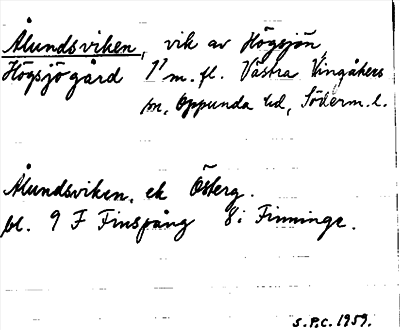 Ålundsviken, vik av Högsjön,
Högsjögård 1⁷ m.fl. Västra Vingåkers
sn, Oppunda hd, Söderm. l.
Ålundsviken, ek Österg.
bl. 9 F Finspång 8i Finninge.
S.P.C. 1959.